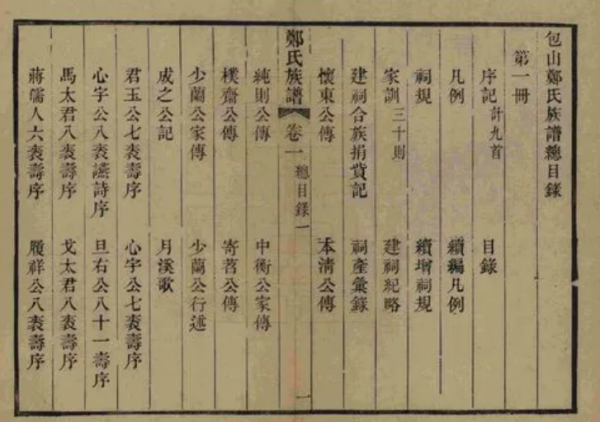 包山鄭氏族譜總目錄
第一冊
序記 計九首 目錄
凡例 續編凡例
祠規 續增祠規
家訓 三十則 建祠紀略
建祠合族捐貲記 祠產彙錄
懷東公傳 本清公傳
鄭氏族譜 卷一 總目錄 一
純則公傳 中衡公家傳
樸齋公傳 寄菩公傳
少蘭公家傳 少蘭公行述
成之公記 月溪歌
君玉公七袠壽序 心字公七袠壽序
心字公八袠讌詩序 旦右公八十一壽序
馬太君八袠壽序 戈太君八袠壽序
蔣孺人六袠壽序 履祥公八袠壽序